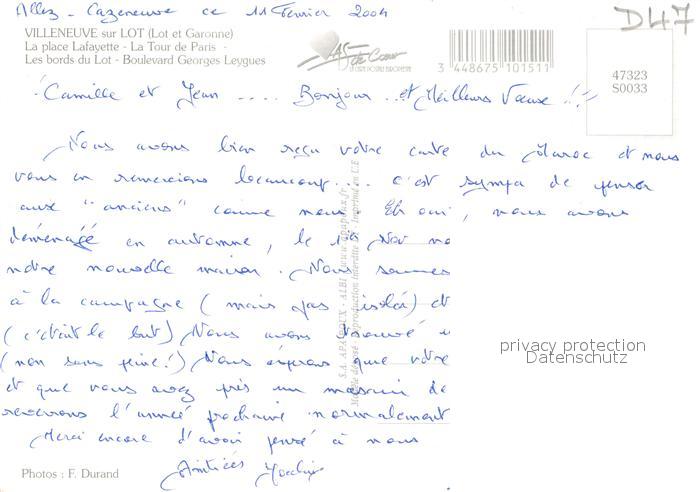 Allez - Cazeneuve ce 11 Février 2004
D47
VILLENEUVE sur LOT (Lot et Garonne)
La place Lafayette - La Tour de Paris -
Les bords du Lot - Boulevard Georges Leygues
AS de Cœur
LA CARTE POSTALE EUROPEENNE
3 448675 101511
47323
S0033
Camille et Jean .... Bonjour .. et Meilleurs Vœux !!!
Nous avons bien reçu votre carte du Maroc et nous
vous en remercions beaucoup.... c'est sympa de penser
aux "anciens" comme nous. Eh oui, nous avons
déménagé en automne, le 1er Nov
notre nouvelle maison. Nous sommes
à la campagne (mais pas isolé) et
(c'était le but) Nous avons trouvé
(non sans peine!) Nous espérons que votre
et que vous avez pris un maximum de
reverrons l'année prochaine normalement
Merci encore d'avoir pensé à nous
Amitiés
S.A. APA-POUX - ALBI (www.apapoux.fr)
Modèle déposé - Reproduction interdite - Imprimé en U.E.
privacy protection
Datenschutz
Photos : F. Durand